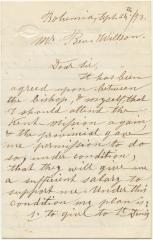 Bohemia, Sept 26th /93.
Mr. Benj Willson.
Dear Sir,
It has been
agreed upon between
the bishop, & myself, that
I should attend the
Kent Mission again,
and the provincial gave
me permission to do
so, under condition,
that they will give me
a sufficient salary to
support me. Under this
condition my plan is:
1. to give to St.